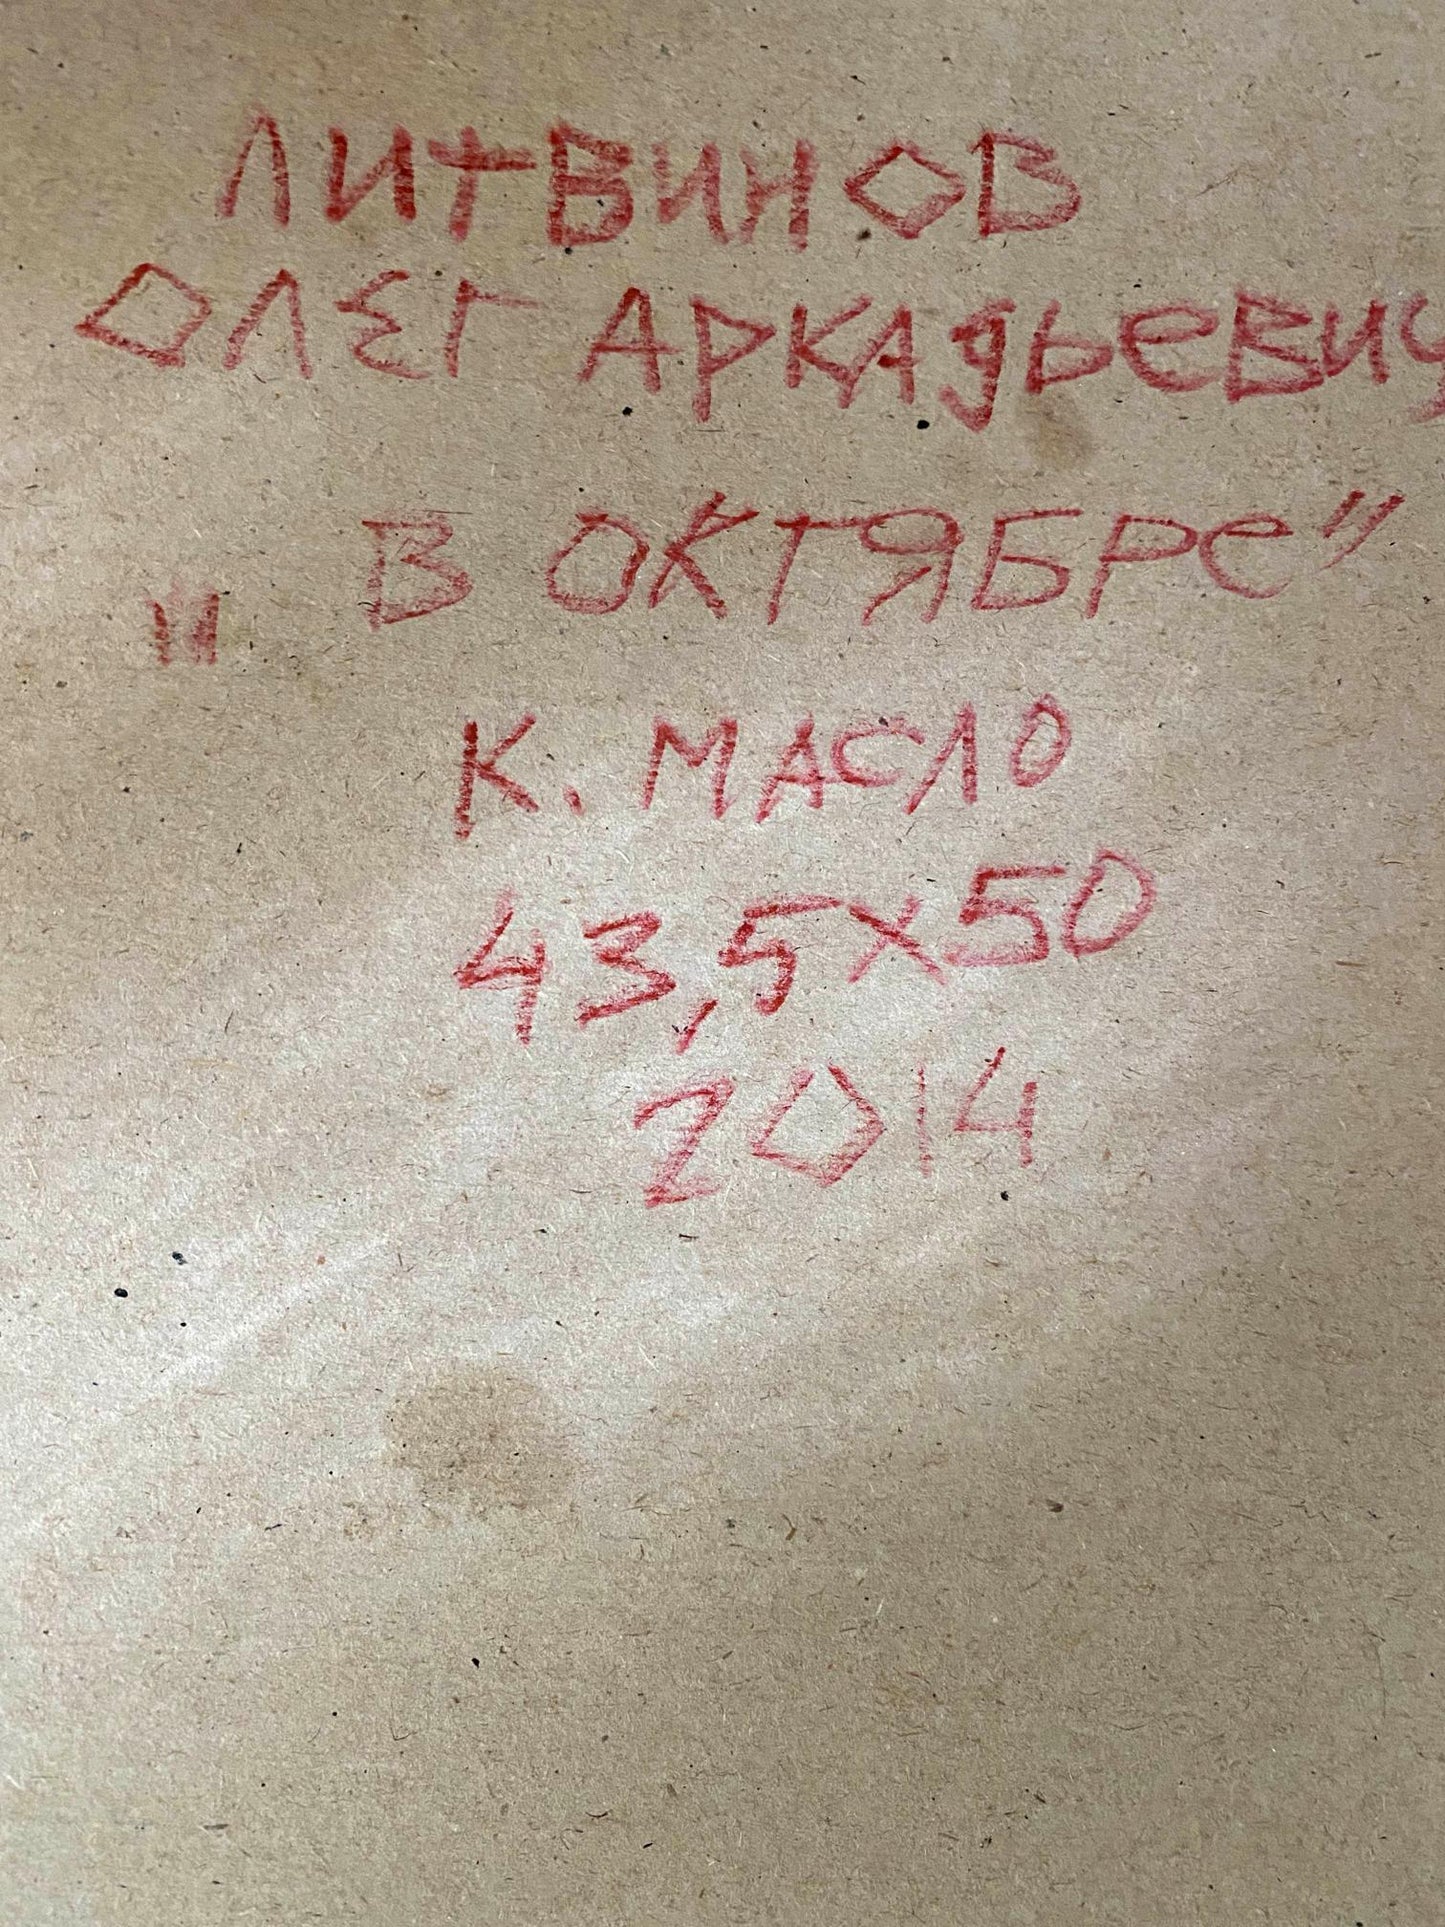 ЛИТВИНОВ
ОЛЕГ АРКАДЬЕВИЧ
"В ОКТЯБРЕ"
К. МАСЛО
43,5х50
2014